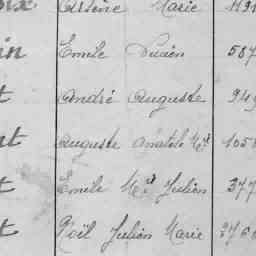 Arsène Marie
in Emile Lucien 587
t André Auguste 949
nt Auguste Anatole Mie 1058
t Emile Mie Julien 377
t Noël Julien Marie 376